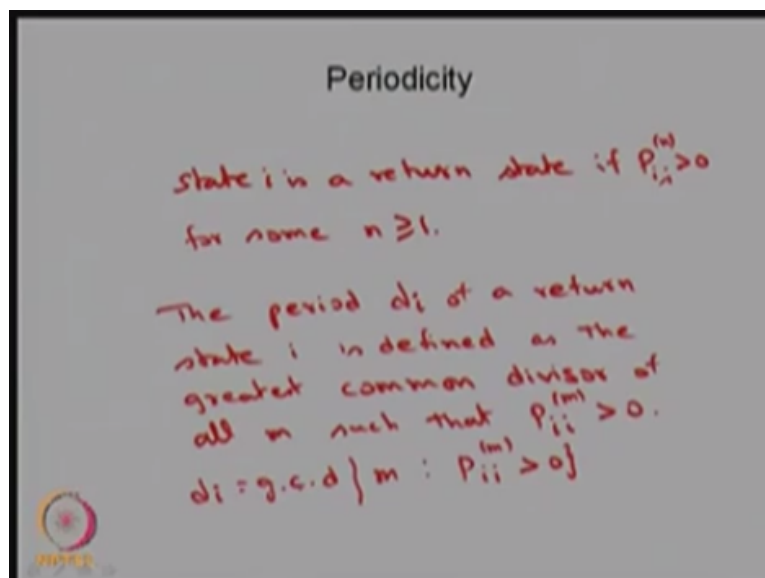 Periodicity
state i is a return state if P_{ii}^{(n)} > 0
for some n ≥ 1.
The period di of a return
state i is defined as the
greatest common divisor of
all m such that P_{ii}^{(m)} > 0.
di = g.c.d } m : P_{ii}^{(m)} > 0}
NPTEL